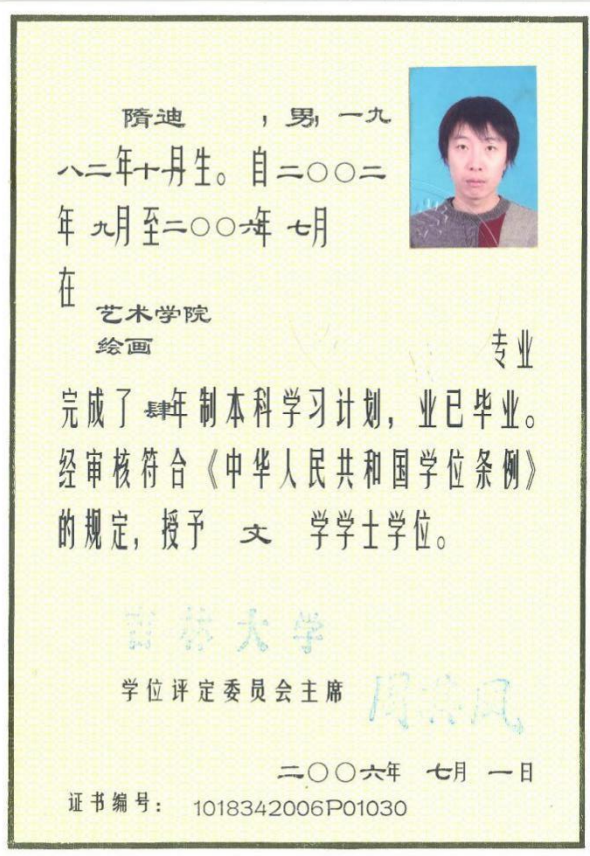 隋迪 ，男，一九
八二年十月生。自二〇〇二
年九月至二〇〇六年七月
在
艺术学院
绘画
专业
完成了肆年制本科学习计划，业已毕业。
经审核符合《中华人民共和国学位条例》
的规定，授予 文 学学士学位。
吉林大学
学位评定委员会主席
二〇〇六年 七月 一日
证书编号：1018342006P01030